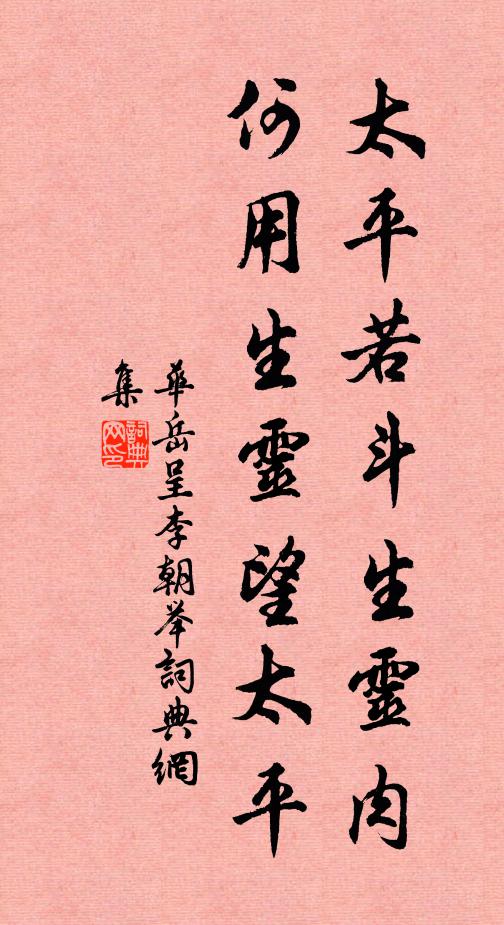 太平若斗生靈肉
何用生靈望太平
華岳呈李朝举詞典網
集
詞典
网印